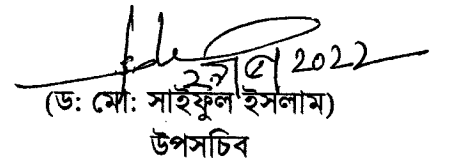 2022
(ড: মো: সাইফুল ইসলাম)
উপসচিব